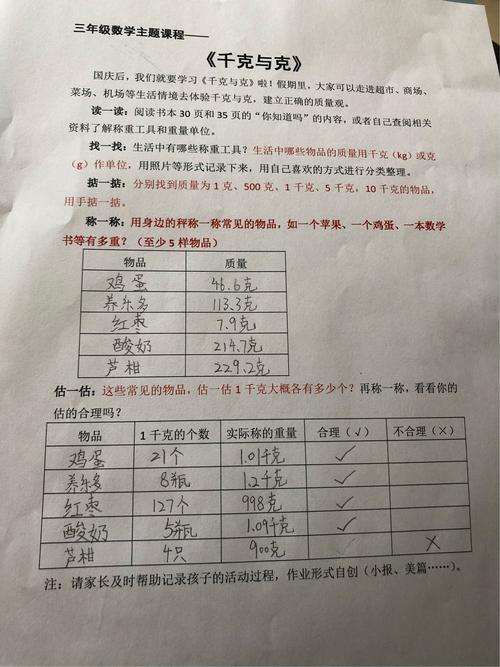 三年级数学主题课程——
《千克与克》
国庆后，我们就要学习《千克与克》啦！假期里，大家可以走进超市、商场、
菜场、机场等生活情境去体验千克与克，建立正确的质量观。
读一读：阅读书本 30 页和 35 页的“你知道吗”的内容，或者自己查阅相关
资料了解称重工具和重量单位。
找一找：生活中有哪些称重工具？生活中哪些物品的质量用千克（kg）或克
（g）作单位，用照片等形式记录下来，用自己喜欢的方式进行分类整理。
掂一掂：分别找到质量为 1 克、500 克、1 千克、5 千克，10 千克的物品，
用手掂一掂。
称一称：用身边的秤称一称常见的物品，如一个苹果、一个鸡蛋、一本数学
书等有多重？（至少 5 样物品）
物品 质量
鸡蛋 46.6克
养乐多 113.3克
红枣 7.9克
酸奶 214.7克
芦柑 229.2克
估一估：这些常见的物品，估一估 1 千克大概各有多少个？再称一称，看看你的
估的合理吗？
物品 1 千克的个数 实际称的重量 合理（√） 不合理（×）
鸡蛋 21个 1.01千克 √
养乐多 8瓶 1.2千克 √
红枣 127个 998克 √
酸奶 5瓶 1.09千克 √
芦柑 4只 900克 ×
注：请家长及时帮助记录孩子的活动过程，作业形式自创（小报、美篇……）。